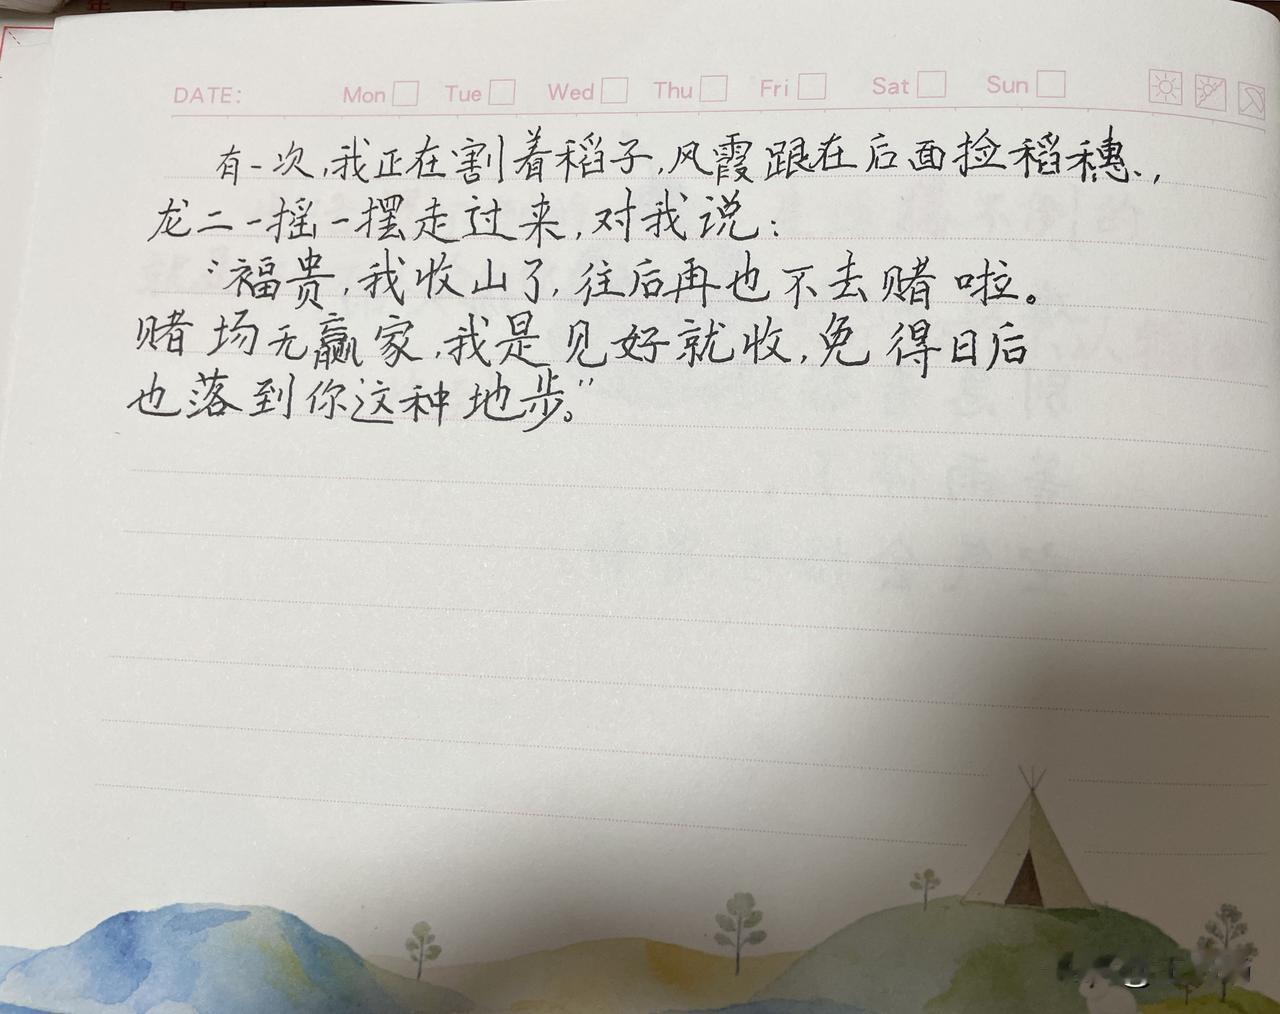 DATE: Mon Tue Wed Thu Fri Sat Sun
有一次,我正在割着稻子,风霞跟在后面捡稻穗.,
龙二一摇一摆走过来,对我说:
“福贵,我收山了,往后再也不去赌啦。
赌场无赢家,我是见好就收,免得日后
也落到你这种地步。”